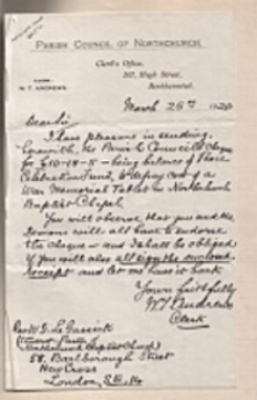 PARISH COUNCIL OF NORTHCHURCH.
Clerk's Office,
CLERK:
W. T. ANDREWS.
High Street,
Berkhamsted.
March 26th 1920
Dear Sir
I have pleasure in sending
herewith, the Parish Council's cheque
for £10-18-5 - being balance of Peace
Celebration Fund, to defray cost of a
War Memorial Tablet in Northchurch
Baptist Chapel.
You will observe that you and the
Deacons will all have to endorse
the cheque - and I shall be obliged
if you will also all sign the enclosed
receipt and let me have it back
Yours faithfully
W T Andrews
Clerk
Northchurch Baptist Church)
58, Barlborough Street
New Cross
London, S.E. 14